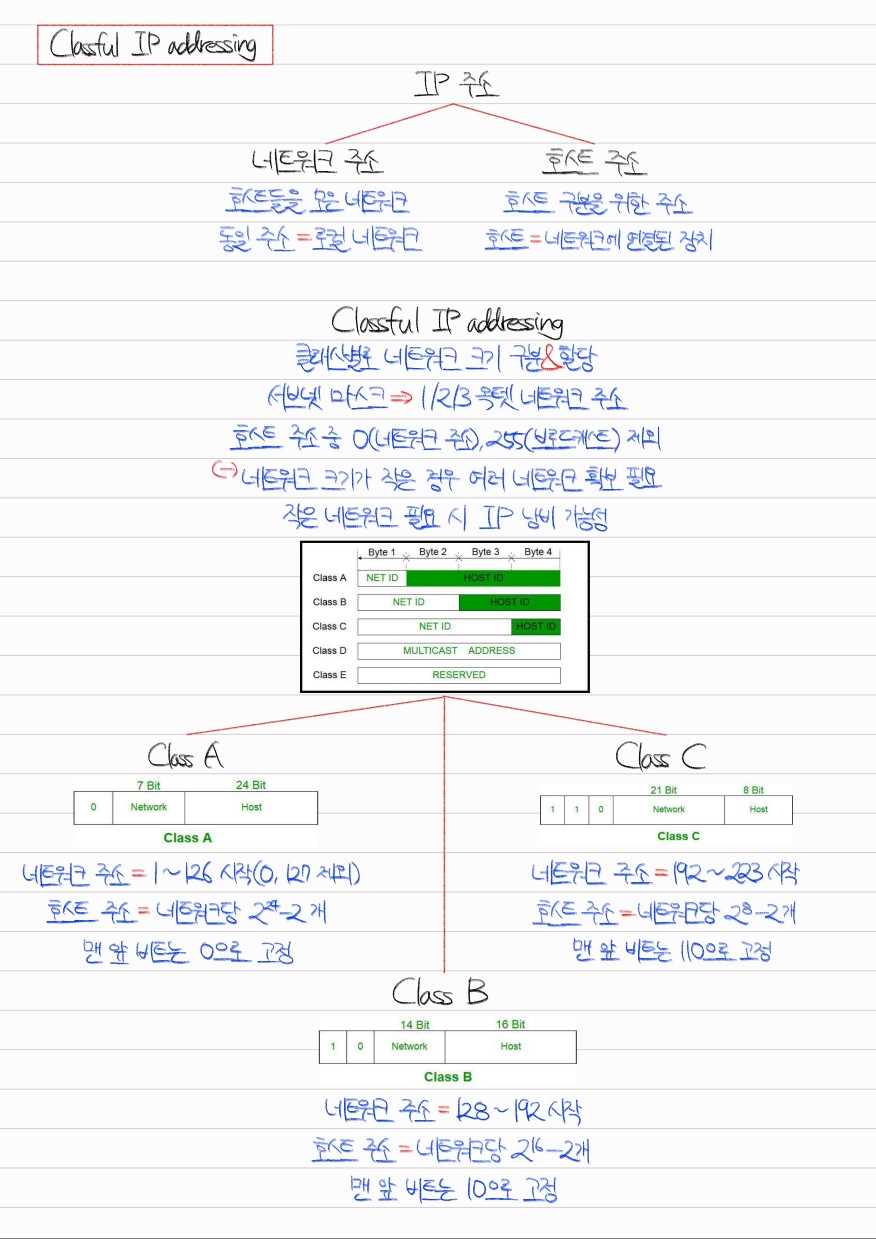 Classful IP addressing
IP 주소
네트워크 주소
호스트들을 모은 네트워크
동일 주소 = 로컬 네트워크
호스트 주소
호스트 구분을 위한 주소
호스트 = 네트워크에 연결된 장치
Classful IP addressing
클래스별로 네트워크 크기 구분 & 할당
서브넷 마스크 ⇒ 1/2/3 옥텟 네트워크 주소
호스트 주소 중 0(네트워크 주소), 255(브로드캐스트) 제외
(-) 네트워크 크기가 작은 경우 여러 네트워크 확보 필요
작은 네트워크 필요 시 IP 낭비 가능성
Byte 1 Byte 2 Byte 3 Byte 4
Class A NET ID HOST ID
Class B NET ID HOST ID
Class C NET ID HOST ID
Class D MULTICAST ADDRESS
Class E RESERVED
Class A
7 Bit 24 Bit
0 Network Host
Class A
네트워크 주소 = 1~126 시작(0, 127 제외)
호스트 주소 = 네트워크당 2²⁴-2개
맨 앞 비트는 0으로 고정
Class C
21 Bit 8 Bit
1 1 0 Network Host
Class C
네트워크 주소 = 192~223 시작
호스트 주소 = 네트워크당 2⁸-2개
맨 앞 비트는 110으로 고정
Class B
14 Bit 16 Bit
1 0 Network Host
Class B
네트워크 주소 = 128~192 시작
호스트 주소 = 네트워크당 2¹⁶-2개
맨 앞 비트는 10으로 고정